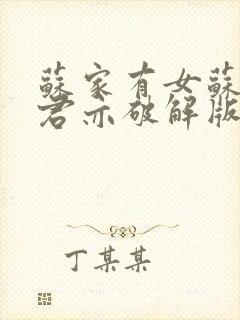 蘇家有女蘇
君亦破解版
丁某某